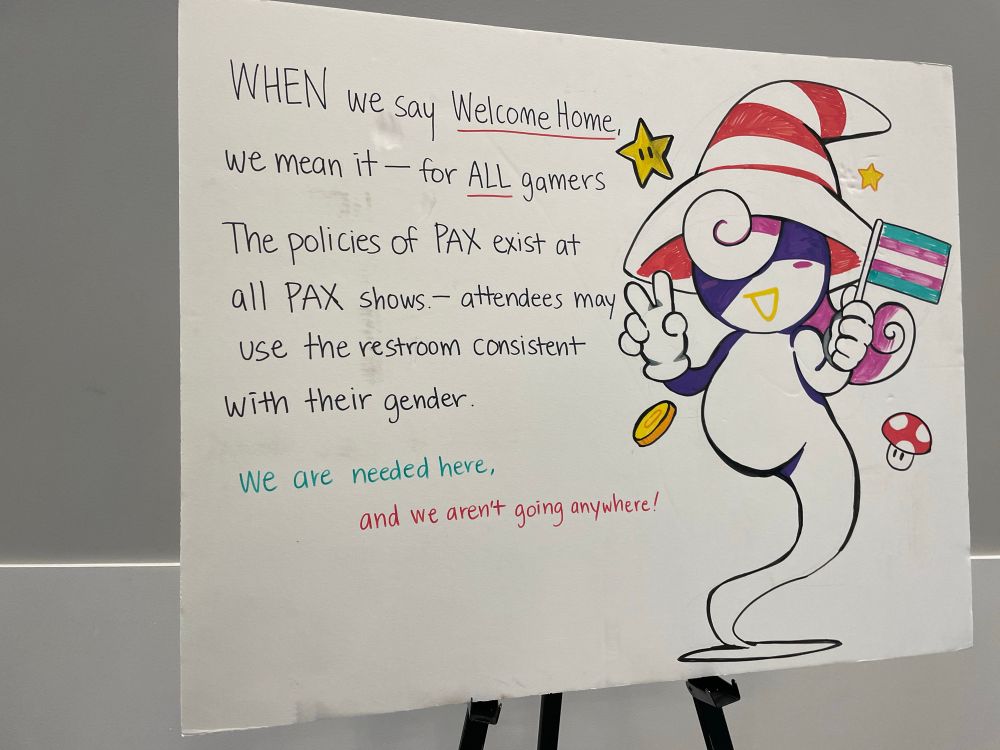 WHEN we say Welcome Home,
we mean it — for ALL gamers
The policies of PAX exist at
all PAX shows. — attendees may
use the restroom consistent
with their gender.
We are needed here,
and we aren't going anywhere!